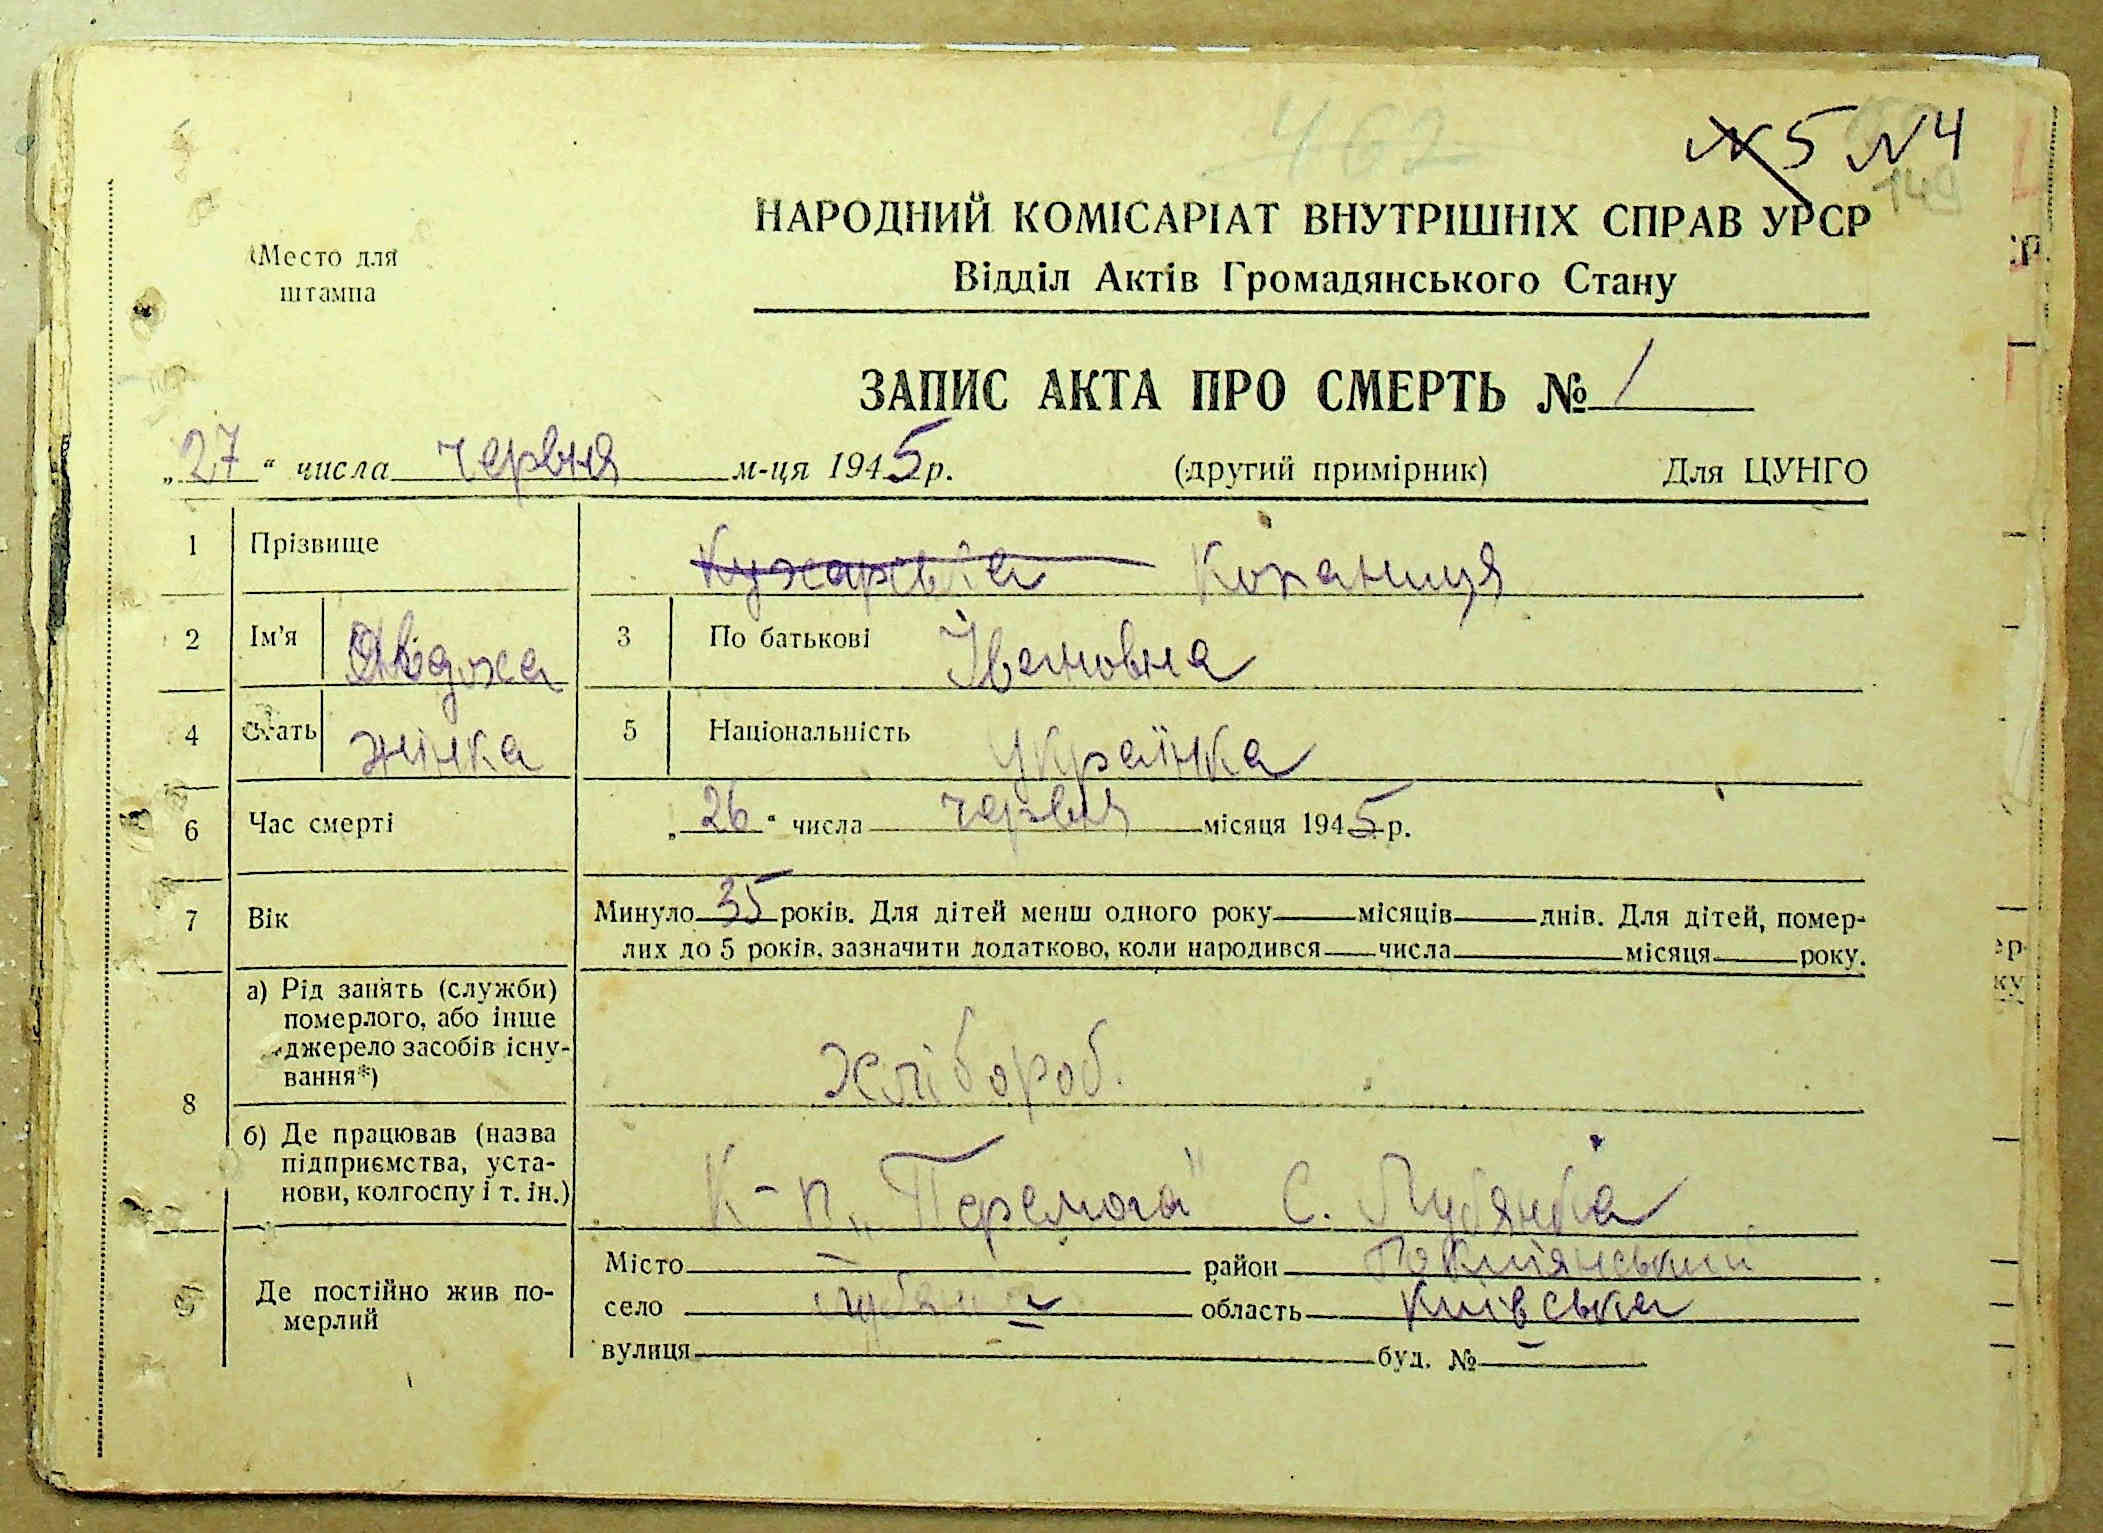 462
№5 №4
149
Место для
штампа
НАРОДНИЙ КОМІСАРІАТ ВНУТРІШНІХ СПРАВ УРСР
Відділ Актів Громадянського Стану
ЗАПИС АКТА ПРО СМЕРТЬ № 1
„27“ числа червня м-ця 1945 р. (другий примірник) Для ЦУНГО
1 Прізвище Кухарська Копаниця
2 Ім'я Явдоха 3 По батькові Івановна
4 Стать жінка 5 Національність українка
6 Час смерті „26“ числа червня місяця 1945 р.
7 Вік Минуло 35 років. Для дітей менш одного року місяців днів. Для дітей, помер-
лих до 5 років, зазначити додатково, коли народився числа місяця року.
8 а) Рід занять (служби)
померлого, або інше
джерело засобів існу-
вання*)
Хлібороб.
б) Де працював (назва
підприємства, уста-
нови, колгоспу і т. ін.)
К-п „Перемога" с.
9 Де постійно жив по-
мерлий
Місто — район
село область Київська
вулиця буд. № —